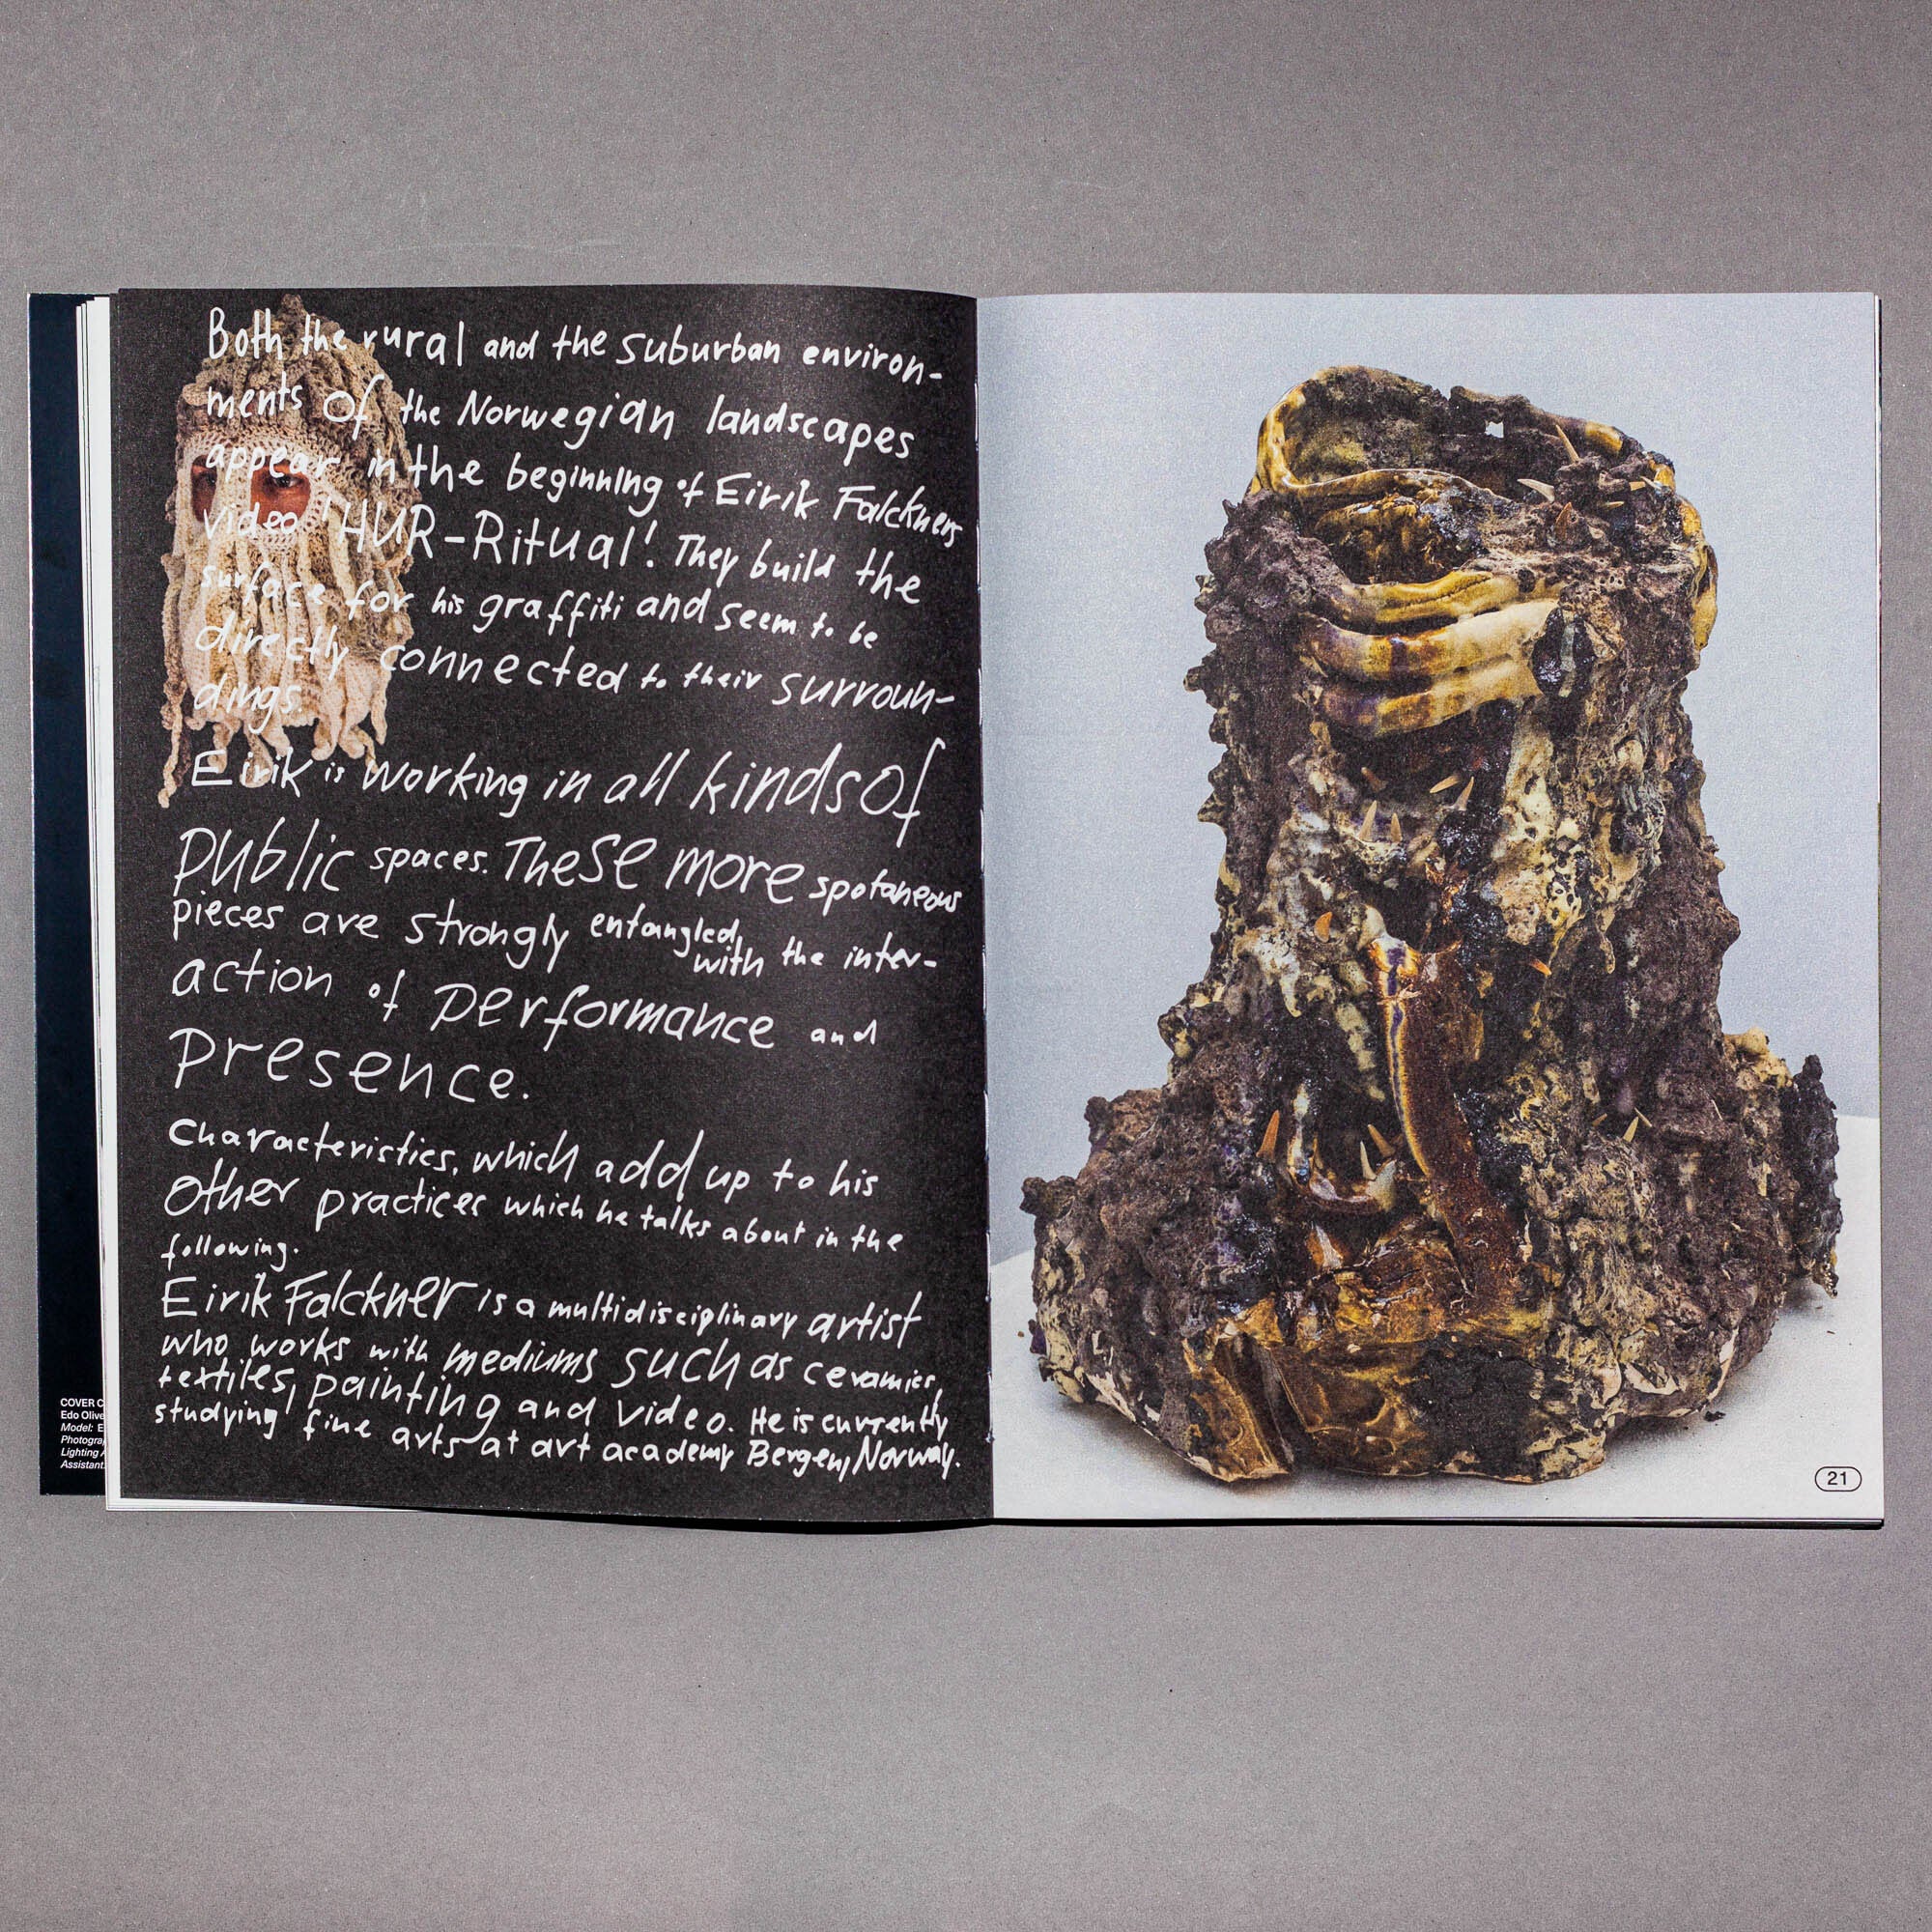 Both the rural and the suburban environ-
ments of the Norwegian landscapes
appear in the beginning of Eirik Falckners
video 'HUR-Ritual'. They build the
surface for his graffiti and seem to be
directly connected to their surroun-
dings.
Eirik is working in all kinds of
public spaces. These more spotaneous
pieces are strongly entangled
with the inter-
action of performance and
presence.
Characteristics, which add up to his
other practices which he talks about in the
following.
Eirik Falckner is a multidisciplinary artist
who works with mediums such as ceramics,
textiles, painting and video. He is currently
studying fine arts at art academy Bergen, Norway.
COVER
Edo
Model:
Lighting
Assistant
21